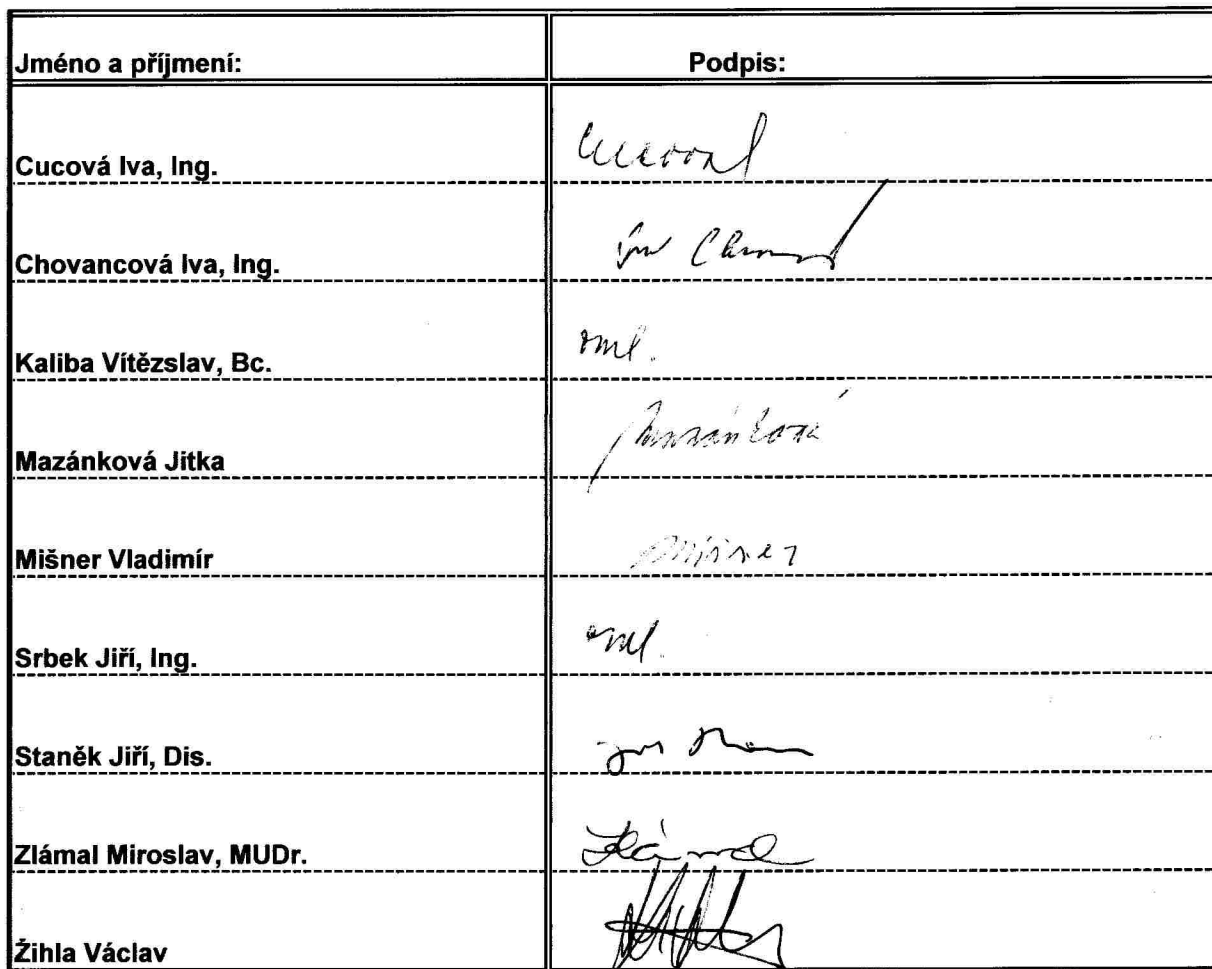 Jméno a příjmení: Podpis:
Cucová Iva, Ing. Cucová
Chovancová Iva, Ing.
Kaliba Vítězslav, Bc. oml.
Mazánková Jitka Mazánková
Mišner Vladimír Mišner
Srbek Jiří, Ing. oml.
Staněk Jiří, Dis.
Zlámal Miroslav, MUDr.
Žihla Václav